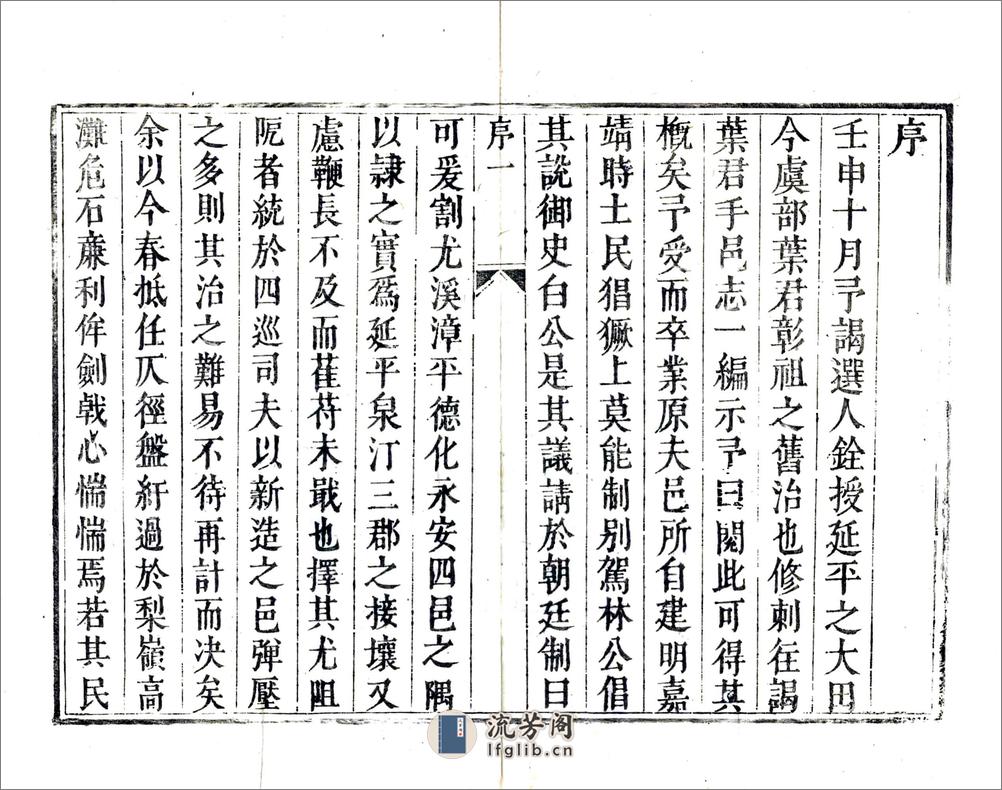 序
壬申十月予謁選人銓授延平之大田
今虞部葉君彰祖之舊治也修刺往謁
葉君手邑志一編示予曰閱此可得其
槪矣予受而卒業原夫邑所自建明嘉
靖時士民猖獗上莫能制别駕林公倡
其說御史白公是其議請於朝廷制曰
序一
可爰割尤溪漳平德化永安四邑之隅
以隷之實爲延平泉汀三郡之接壤又
慮鞭長不及而萑苻未戢也擇其尤阻
阨者統於四巡司夫以新造之邑彈壓
之多則其治之難易不待再計而决矣
余以今春抵任仄徑盤紆過於梨嶺高
灘危石亷利侔劍戟心惴惴焉若其民
流芳阁
lfglib.cn